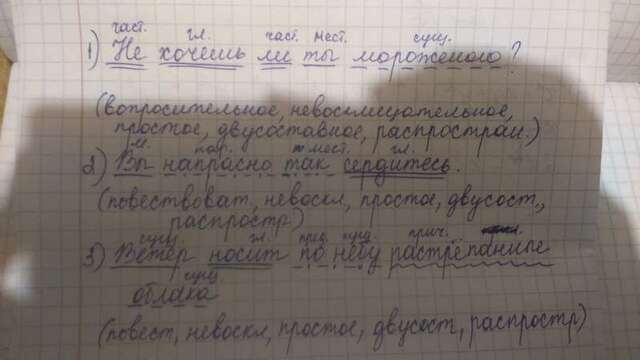 част. гл. част. мест. сущ.
1) Не хочешь ли ты мороженого?
(вопросительное, невосклицательное,
простое, двусоставное, распростран.)
м. нар. мест. гл.
2) Вы напрасно так сердитесь.
(повествоват, невоскл, простое, двусост.,
распростр)
сущ. гл. пред. сущ. прич.
3) Ветер носит по небу растрёпанные
сущ
облака
(повест, невоскл, простое, двусост, распростр)